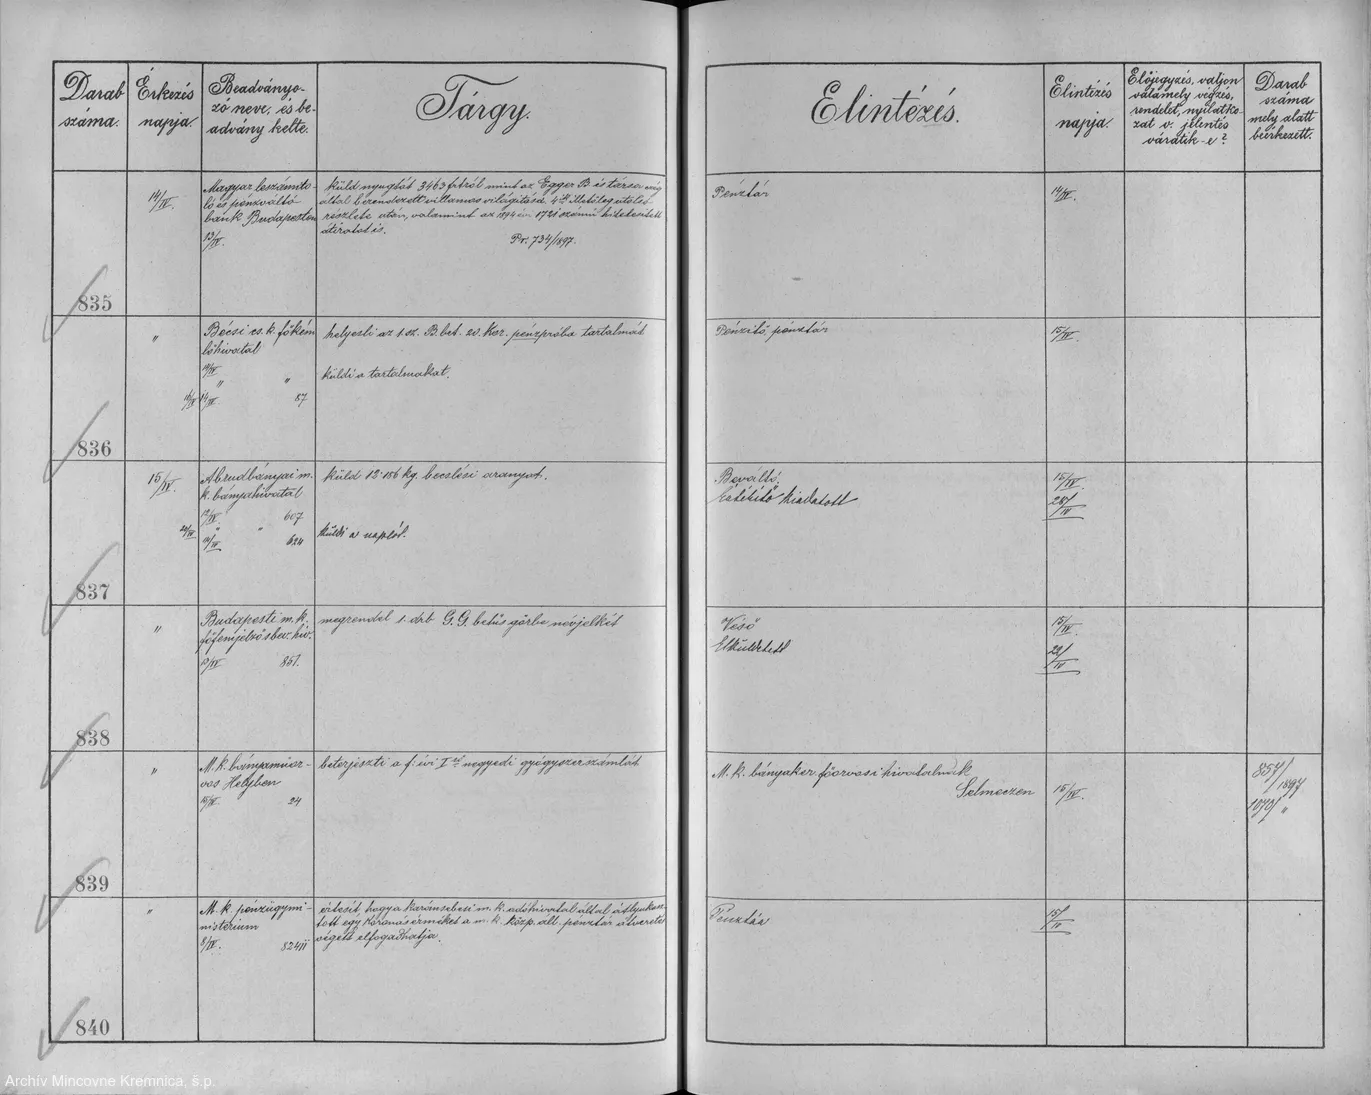 Darab száma.
Érkezés napja.
Beadványo-
zó neve, és be-
advány kelte.
Tárgy.
Elintézés.
Elintézés napja.
Előjegyzés, valjon
valamely végzés,
rendelet, nyilatko-
zat v. jelentés
váratik-e?
Darab
száma
mely alatt
beérkezett.
835
14/IV.
Magyar leszámito-
ló és pénzváltó
bank Budapesten
13/IV.
küld nyugtát 3463 frtról mint az Egger B. és társa cég
által berendezett villamos világítás
részlete után, valamint az 1894 évi 1721 számú hitelesített
átiratot is.
Pr. 734/1897.
Pénztár
14/IV.
836
"
Bécsi cs. k. főkém-
lőhivatal
14/IV
" "
14/IV 87
helyesli az 1. sz. B. bet. 20. Kor. pénzpróba tartalmát
küldi a tartalmakat.
Pénzítő, pénztár
15/IV.
837
15/IV.
Abrudbányai m.
k. bányahivatal
12/IV. 607
" "
624
küld 12.156 kg. becslési aranyat.
küldi a naplót.
Beváltó.
kiadatott
15/IV.
28/IV
838
"
Budapesti m. k.
főfémjelző s bev. hiv.
13/IV 851.
megrendel 1 drb G.G. betűs görbe névjelkét
Véső
Elküldetett
15/IV.
28/IV
839
"
M. k. bányamüor-
vos Helyben
15/IV 24
beterjeszti a f. évi I ső negyedi gyógyszerszámlát
M. k. bányaker. főorvosi hivatalnak
Selmeczen
15/IV.
857/1897
1070/"
840
"
M. k. pénzügymi-
nisterium
8/IV. 82411
értesít, hogy a Karánsebesi m. k. adóhivatal által átlyukasz-
tott egy koronás érméket a m. k. közp. áll. pénztár átvétele
végett elfogadhatja.
Pénztár
15/IV
Archív Mincovne Kremnica, š.p.